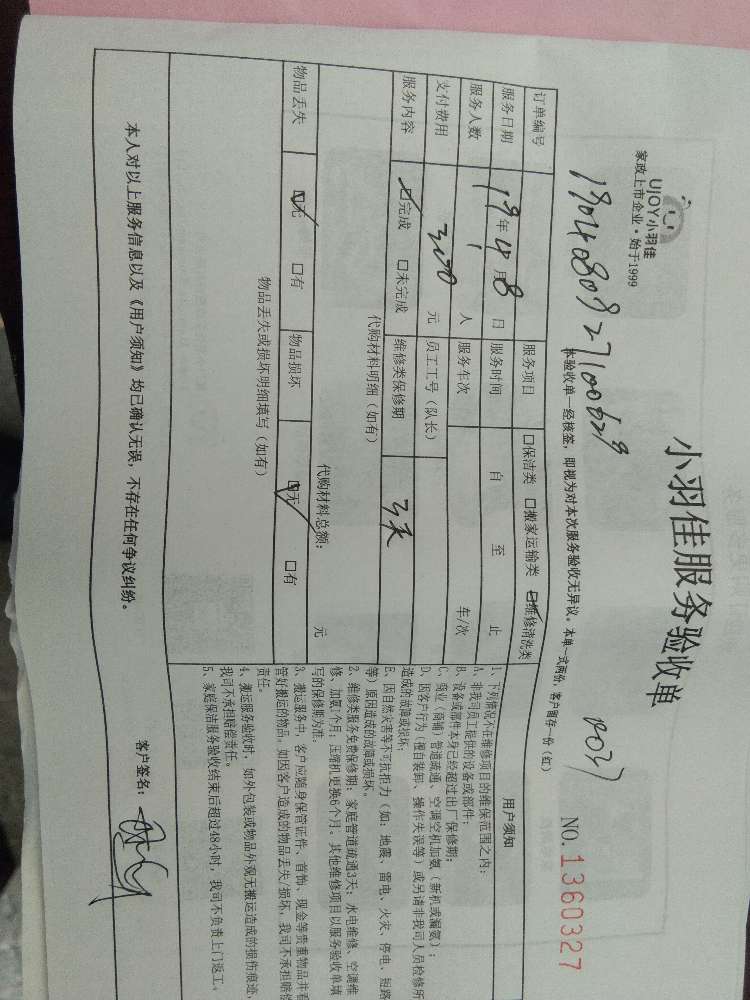 UJOY小羽佳
家政上市企业·始于1999
小羽佳服务验收单
NO.1360327
本验收单一经核签,即视为对本次服务验收无异议。本单一式两份,客户留存一份(红)
订单编号
服务项目 口保洁类 口搬家运输类 口维修清洗类
服务日期 19年4月8日 服务时间 自 至 止
服务人数 1人 服务车次 车/次
支付费用 元 员工工号(队长)
服务内容 口完成 口未完成 维修类保修期 3天
代购材料明细(如有)
代购材料总额: 元
物品丢失 口无 口有 物品损坏 口无 口有
物品丢失或损坏明细填写(如有)
用户须知
1、下列情况不在维修项目的维保范围之内:
A、非我司员工提供的设备或部件;
B、设备或部件本身已经超过出厂保修期;
C、商业(商铺)管道疏通、空调空机加氨(新机或漏氨);
D、因客户行为(擅自装卸、操作失误等)或另请非我司人员检修所
造成的故障或损坏;
E、因自然灾害等不可抗拒力(如:地震、雷电、火灾、停电、短路
等)原因造成的故障或损坏。
2、维修类服务免费保修期:家庭管道疏通3天;水电维修、空调维
修、加氨1个月;压缩机更换6个月。其他维修项目以服务验收单填
写的保修期为准。
3、搬运服务中,客户应随身保管证件、首饰、现金等贵重物品并看
管好搬运的物品,如因客户造成的物品丢失/损坏,我司不承担赔偿
责任。
4、搬运服务验收时,如外包装或物品外观无搬运造成的损伤痕迹,
我司不承担赔偿责任。
5、家庭保洁服务验收结束后超过48小时,我司不负责上门返工。
本人对以上服务信息以及《用户须知》均已确认无误,不存在任何争议纠纷。
客户签名: